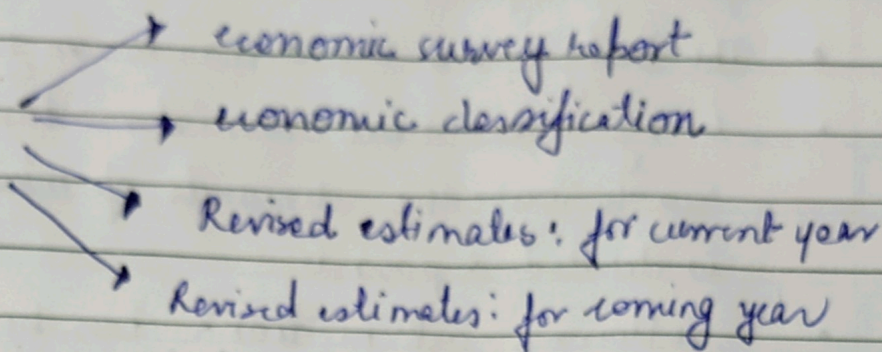 economic survey report
economic classification
Revised estimates: for current year
Revised estimates: for coming year